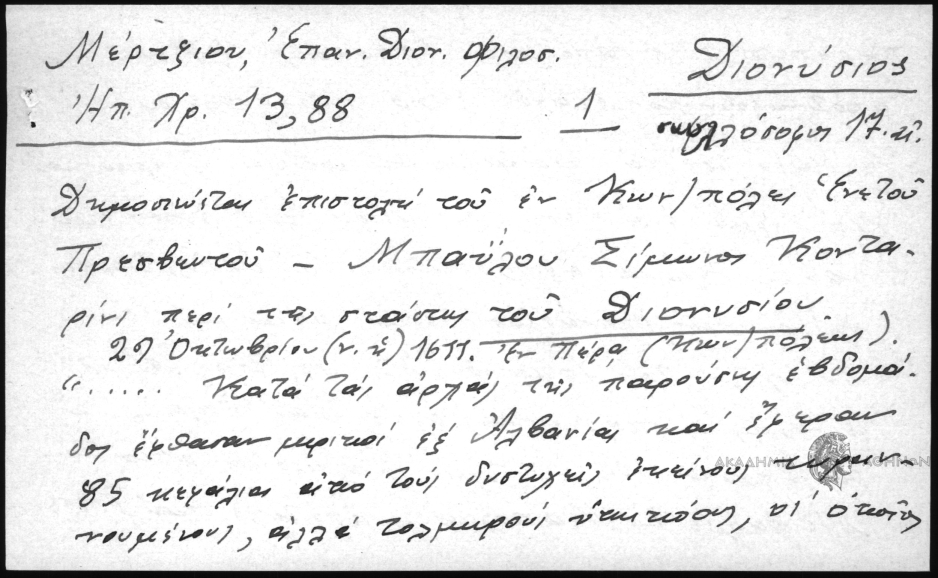 Μέρτζιου, Ἐπαν. Διον. Φιλοσ.
Διονύσιος
Ἠπ. Χρ. 13,88
1
σκυλλόσοφος 17. αἰ.
Δημοσιεύεται ἐπιστολή τοῦ ἐν Κων/πόλει Ἑνετοῦ
Πρεσβευτοῦ – Μπαΰλου Σίμωνος Κοντα-
ρίνι περί τῆς στάσεως τοῦ Διονυσίου
29 Ὀκτωβρίου (ν. ἡ) 1611. Ἐν Πέρα (Κων/πόλεως).
"..... Κατά τάς ἀρχάς τῆς παρούσης ἑβδομά-
δος ἔφθασαν μερικοί ἐξ Ἀλβανίας καί ἔφεραν
ΑΚΑΔΗΜΙΑ ΑΘΗΝΩΝ
85 κεφάλια ἀπό τούς δυστυχεῖς ἐκείνους
νουμένους, ἀλλά τολμηρούς, οἱ ὁποῖοι